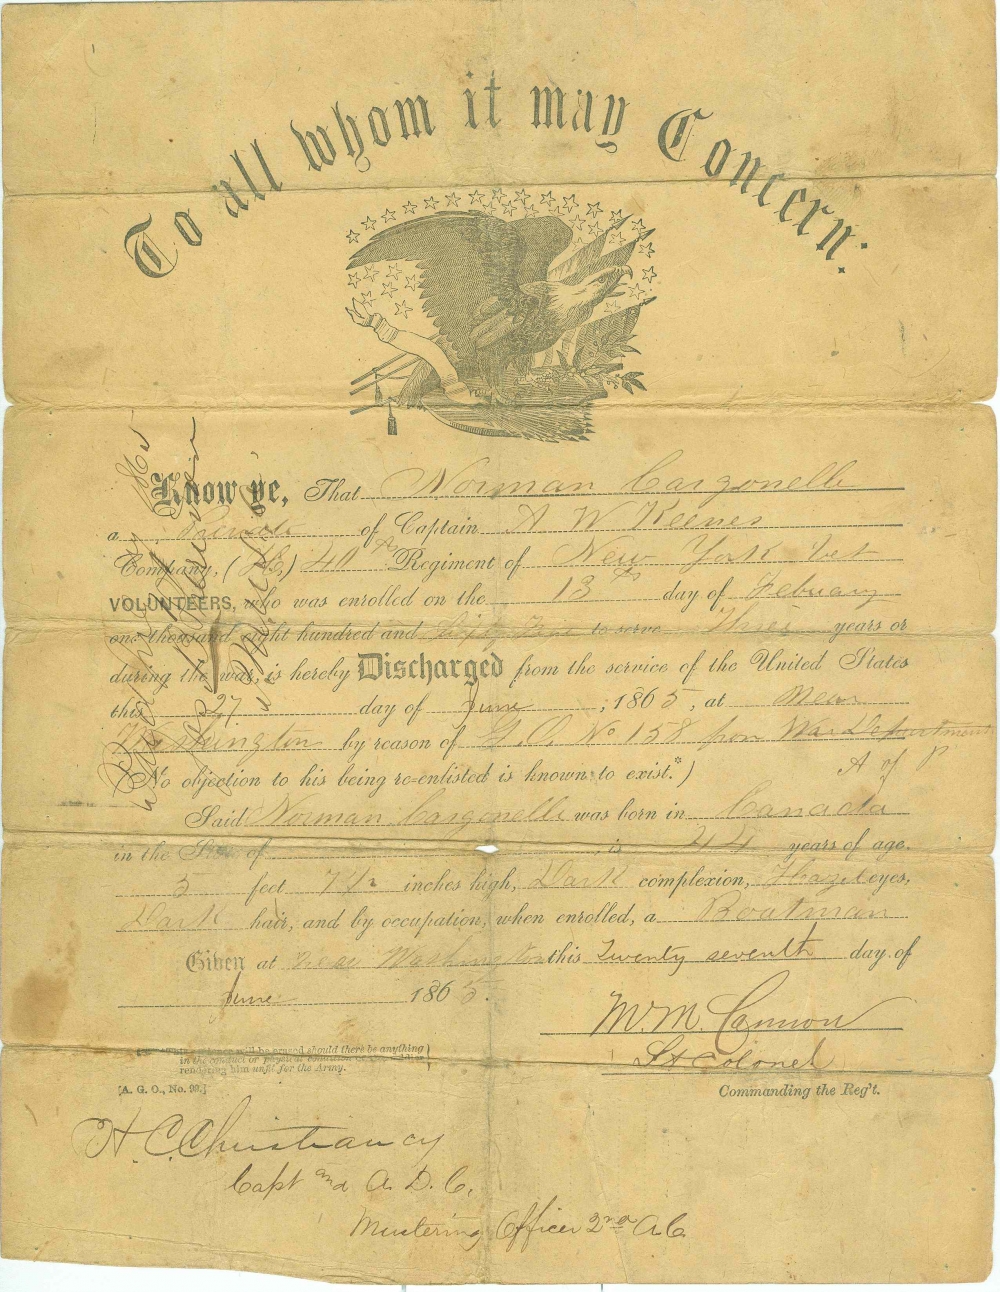 To all whom it may Concern:
Know ye, That Norman Cargonelle
a Private of Captain A W Keenes
Company, ( ) 40th Regiment of New York Vet
VOLUNTEERS, who was enrolled on the 13th day of Febuary
one thousand eight hundred and Sixty Five to serve Three years or
during the war, is hereby Discharged from the service of the United States
this 27 day of June, 1865, at Near
Washington by reason of G.O. No 158 from War Department
A of P
(No objection to his being re-enlisted is known to exist.*)
Said Norman Cargonelle was born in Canada
in the State of , is 44 years of age,
5 feet 7 1/2 inches high, Dark complexion, Hazel eyes,
Dark hair, and by occupation, when enrolled, a Boatman
Given at near Washington this Twenty seventh day of
June 1865.
M. M. Cannon
Lt Colonel
Commanding the Reg't.
will be erased should there be anything
in the conduct or physical condition of
rendering him unfit for the Army.
[A. G. O., No. 99.]
H. C. Christiancy
Capt and A. D. C.
Mustering Officer 2nd A C